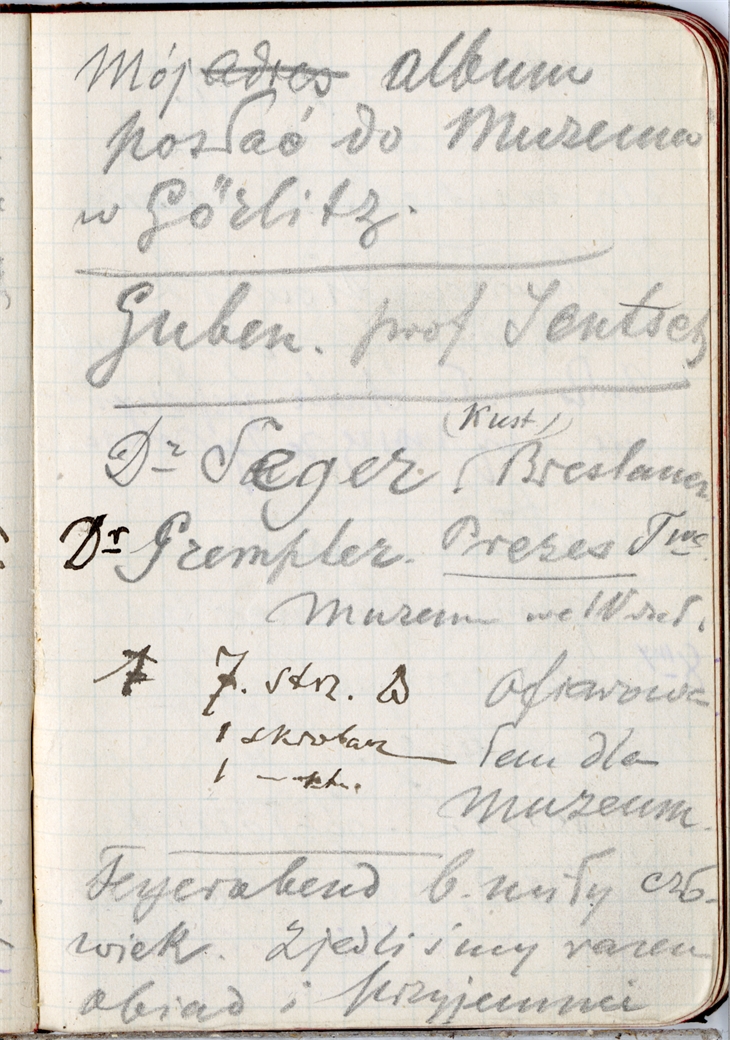 Mój adres album
posłać do Muzeum
w Görlitz.
Guben. prof Jentsch
(Kust)
Dr Seger. Breslau
Dr Grempler. Prezes Twa
Muzeum we Wrocł.
7. strz. Ofiarowa-
1 skrobacz łem dla
1
Muzeum.
Feyerabend b. miły czło-
wiek. Zjedliśmy razem
obiad i przyjemnie